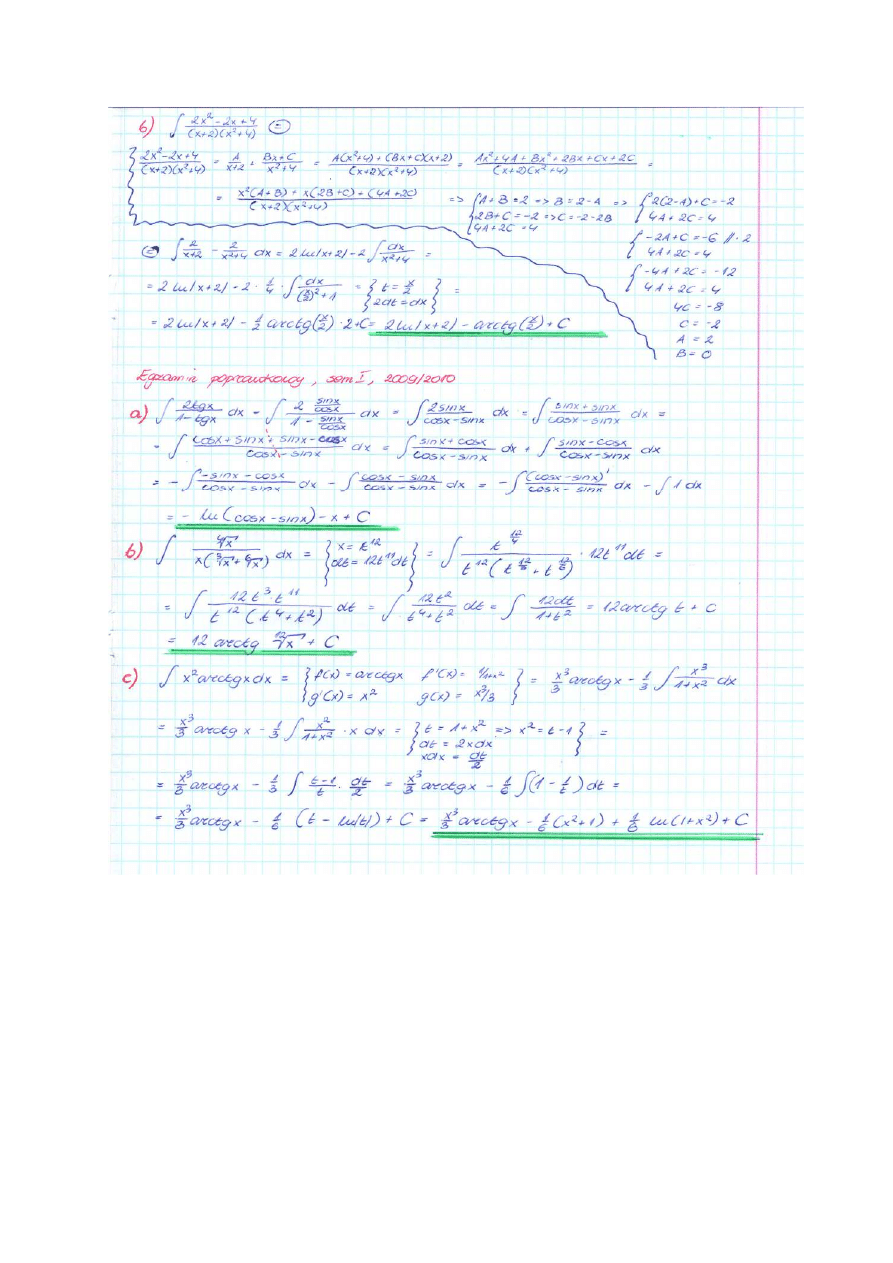 6) ∫ (2x²-2x+4)/((x+2)(x²+4)) (=)
{ (2x²-2x+4)/((x+2)(x²+4)) = A/(x+2) + (Bx+C)/(x²+4) = (A(x²+4)+(Bx+C)(x+2))/((x+2)(x²+4)) = (Ax²+4A+Bx²+2Bx+Cx+2C)/((x+2)(x²+4)) =
= (x²(A+B)+x(2B+C)+(4A+2C))/((x+2)(x²+4)) => { A+B=2 => B=2-A => { 2(2-A)+C=-2
2B+C=-2 => C=-2-2B 4A+2C=4
4A+2C=4
{ -2A+C=-6 //·2
4A+2C=4
{ -4A+2C=-12
4A+2C=4
4C=-8
C=-2
A=2
B=0
(=) ∫ 2/(x+2) - 2/(x²+4) dx = 2 ln|x+2| - 2 ∫ dx/(x²+4) =
= 2 ln|x+2| - 2 · 1/4 · ∫ dx/((x/2)²+1) = { t = x/2 } =
{ 2dt = dx }
= 2 ln|x+2| - 1/2 arctg(x/2) · 2 + C = 2 ln|x+2| - arctg(x/2) + C
Egzamin poprawkowy, sem I, 2009/2010
a) ∫ 2tgx/(1-tgx) dx = ∫ (2 sinx/cosx)/(1 - sinx/cosx) dx = ∫ 2sinx/(cosx-sinx) dx = ∫ (sinx+sinx)/(cosx-sinx) dx =
= ∫ (cosx+sinx+sinx-cosx)/(cosx-sinx) dx = ∫ (sinx+cosx)/(cosx-sinx) dx + ∫ (sinx-cosx)/(cosx-sinx) dx
= -∫ (-sinx-cosx)/(cosx-sinx) dx - ∫ (cosx-sinx)/(cosx-sinx) dx = -∫ (cosx-sinx)'/(cosx-sinx) dx - ∫ 1 dx
= - ln(cosx-sinx) - x + C
b) ∫ ⁴√x/(x(³√x+⁶√x)) dx = { x = t¹² } = ∫ t^(12/4)/(t¹²(t^(12/3)+t^(12/6))) · 12t¹¹dt =
{ dt = 12t¹¹dt }
= ∫ 12t³·t¹¹/(t¹²(t⁴+t²)) dt = ∫ 12t²/(t⁴+t²) dt = ∫ 12dt/(1+t²) = 12arctg t + C
= 12 arctg ¹²√x + C
c) ∫ x²arctgxdx = { f(x) = arctgx f'(x) = 1/1+x² } = x³/3 arctgx - 1/3 ∫ x³/(1+x²) dx
{ g'(x) = x² g(x) = x³/3 }
= x³/3 arctg x - 1/3 ∫ x²/(1+x²) · x dx = { t = 1+x² => x² = t-1 } =
{ dt = 2xdx }
xdx = dt/2
= x³/3 arctgx - 1/3 ∫ (t-1)/t · dt/2 = x³/3 arctgx - 1/6 ∫(1 - 1/t) dt =
= x³/3 arctgx - 1/6 (t - ln|t|) + C = x³/3 arctgx - 1/6 (x²+1) + 1/6 ln(1+x²) + C